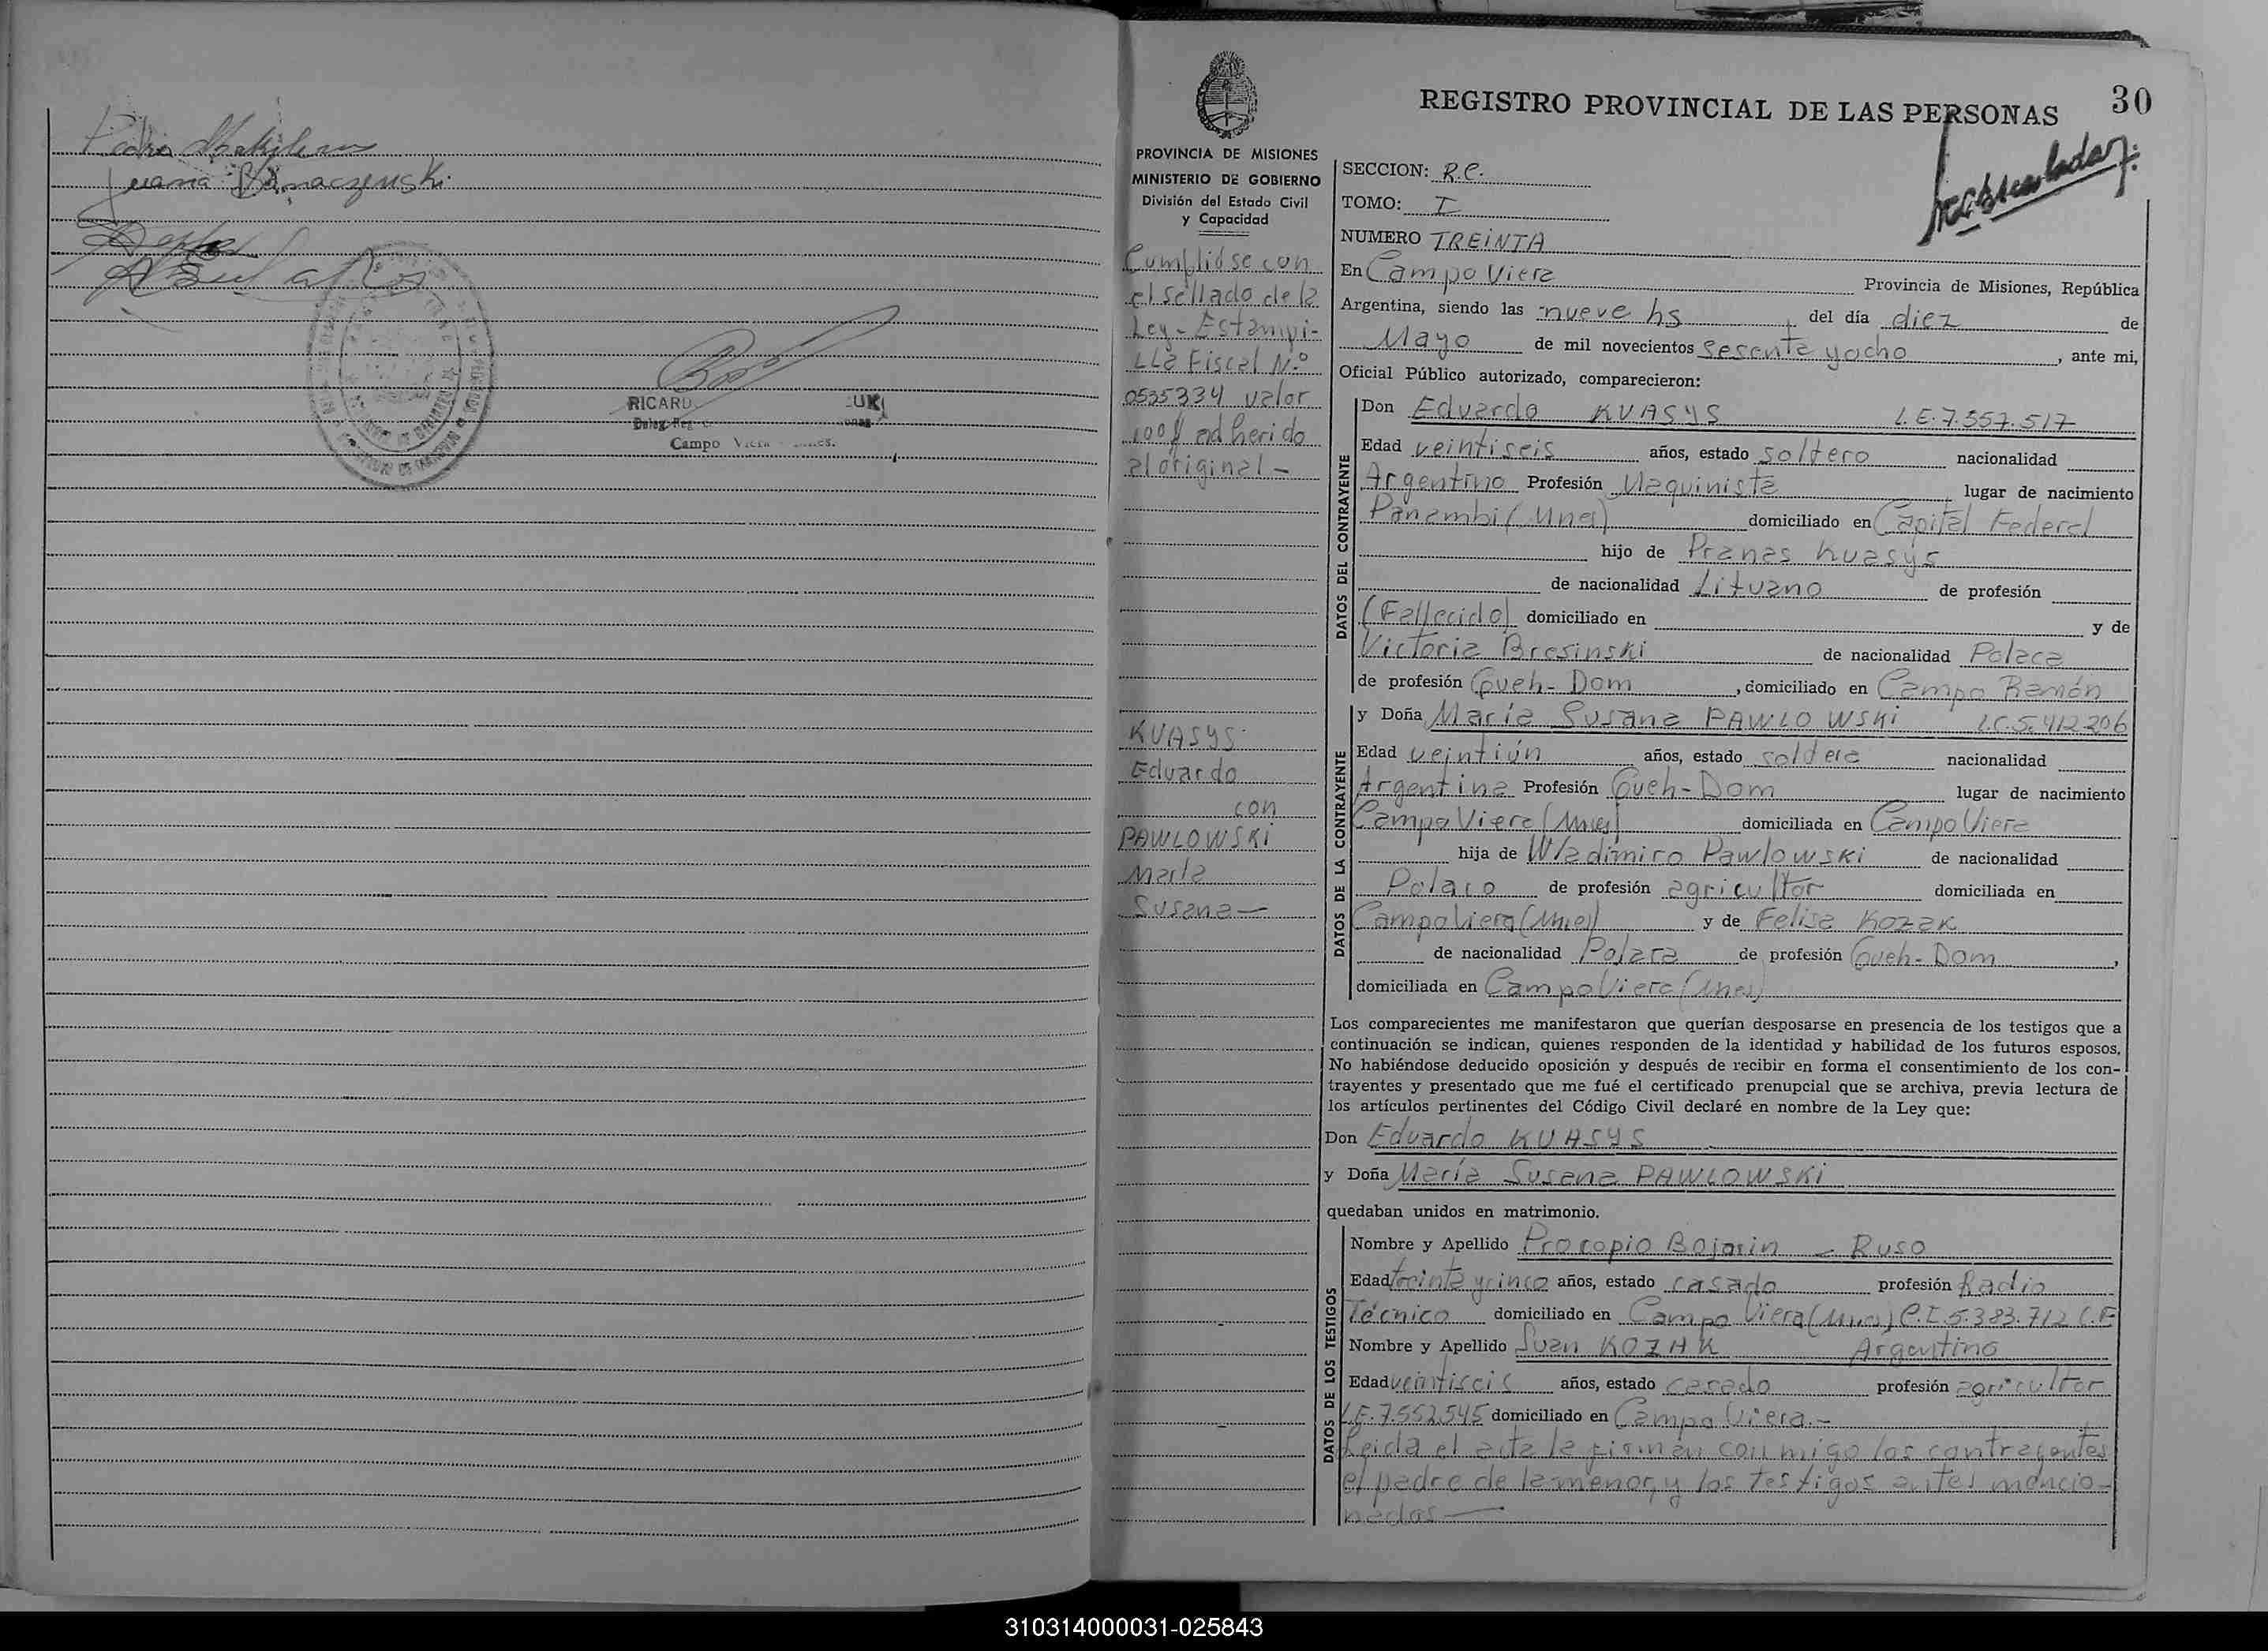 Pedro
Juana
RICARD UK
Deleg. Reg.
Campo Viera
REGISTRO PROVINCIAL DE LAS PERSONAS
30
PROVINCIA DE MISIONES
MINISTERIO DE GOBIERNO
División del Estado Civil
y Capacidad
Cumplióse con
el sellado de la
Ley - Estampi-
lla Fiscal N.º
0525334 valor
100$ adherido
al original -
KUASYS
Eduardo
con
PAWLOWSKi
María
Susana -
SECCION: R.C.
TOMO: I
NUMERO TREiNTA
En Campo Viera Provincia de Misiones, República
Argentina, siendo las nueve hs del día diez de
Mayo de mil novecientos sesenta y ocho, ante mi,
Oficial Público autorizado, comparecieron:
DATOS DEL CONTRAYENTE
Don Eduardo KUASYS L.E. 7.557.517
Edad veintiseis años, estado soltero nacionalidad
Argentino Profesión Maquinista lugar de nacimiento
Panambi (Mnes) domiciliado en Capital Federal
hijo de Pranas Kuasys
de nacionalidad Lituano de profesión
(Fallecido) domiciliado en y de
Victoria Bresinski de nacionalidad Polaca
de profesión Queh-Dom, domiciliado en Campo Ramón
DATOS DE LA CONTRAYENTE
y Doña María Susana PAWLOWSKi L.C. 5.412.206
Edad veintiún años, estado soltera nacionalidad
Argentina Profesión Queh-Dom lugar de nacimiento
Campo Viera (Mnes) domiciliada en Campo Viera
hija de Wladimiro Pawlowski de nacionalidad
Polaco de profesión agricultor domiciliada en
Campo Viera (Mnes) y de Felisa Kozak
de nacionalidad Polaca de profesión Queh-Dom,
domiciliada en Campo Viera (Mnes)
Los comparecientes me manifestaron que querían desposarse en presencia de los testigos que a
continuación se indican, quienes responden de la identidad y habilidad de los futuros esposos.
No habiéndose deducido oposición y después de recibir en forma el consentimiento de los con-
trayentes y presentado que me fué el certificado prenupcial que se archiva, previa lectura de
los artículos pertinentes del Código Civil declaré en nombre de la Ley que:
Don Eduardo KUASYS
y Doña María Susana PAWLOWSKi
quedaban unidos en matrimonio.
DATOS DE LOS TESTIGOS
Nombre y Apellido Procopio Bojarin - Ruso
Edad treinta y cinco años, estado casado profesión Radio
Técnico domiciliado en Campo Viera (Mnes) C.I. 5.383.712 C.F
Nombre y Apellido Juan KOZAK Argentino
Edad veintiseis años, estado casado profesión agricultor
L.E. 7.552.545 domiciliado en Campo Viera.-
Leida el acta la firman conmigo los contrayentes
el padre de la menor, y los testigos antes mencio-
nados -
310314000031-025843